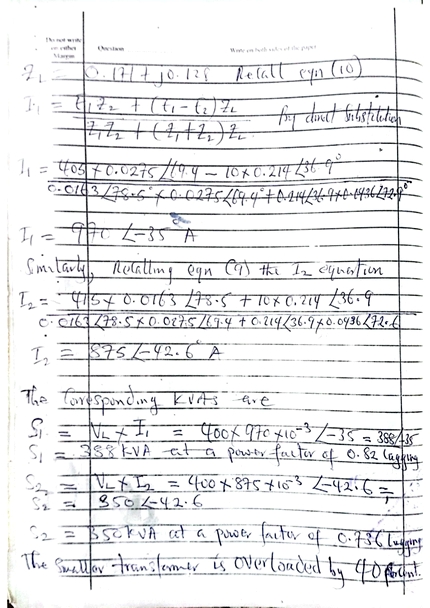 Do not write
on either
Margin
Question
Write on both sides of the paper
Z_L = 0.171 + j0.128 Recall eqn (10)
I₁ = E₁Z₂ + (E₁-E₂)Z_L
Z₁Z₂ + (Z₁+Z₂)Z_L
by direct substitution
I₁ = 405 × 0.0275∠69.4 - 10×0.214∠36.9°
0.0163∠78.5° × 0.0275∠69.4° + 0.214∠36.9×0.0436∠72.9°
I₁ = 970 ∠-35° A
Similarly, Recalling eqn (9) the I₂ equation
I₂ = 415 × 0.0163 ∠78.5 + 10×0.214 ∠36.9
0.0163∠78.5×0.0275∠69.4 + 0.214∠36.9×0.0436∠72.6
I₂ = 875∠-42.6° A
The Corresponding KVAs are
S₁ = V_L × I₁ = 400×970×10⁻³∠-35 = 388∠-35
S₁ = 388 KVA at a power factor of 0.82 lagging
S₂ = V_L × I₂ = 400×875×10⁻³ ∠-42.6 =
S₂ = 350∠-42.6
S₂ = 350KVA at a power factor of 0.736 lagging
The Smaller transformer is overloaded by 40 percent.